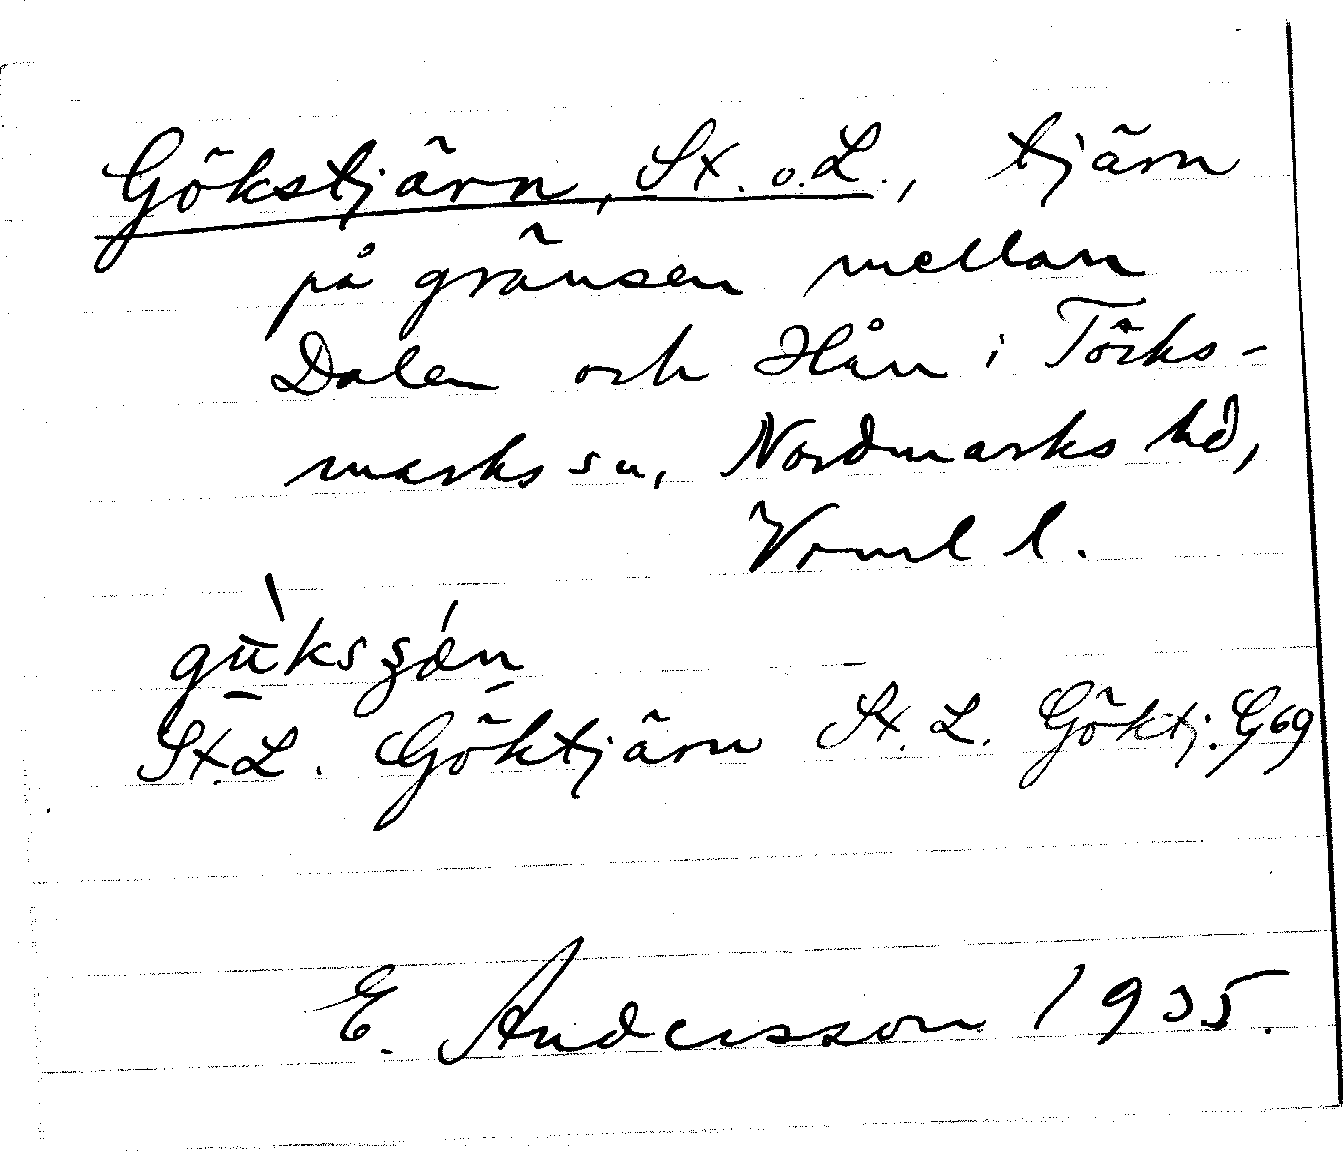 Gökstjärn, St. o. L., tjärn
på gränsen mellan
Dalen och Hån i Töcks-
marks sn, Nordmarks hd,
Verml l.
St. L. Göktjärn St. L. Göktj. G69
E. Andersson 1935.